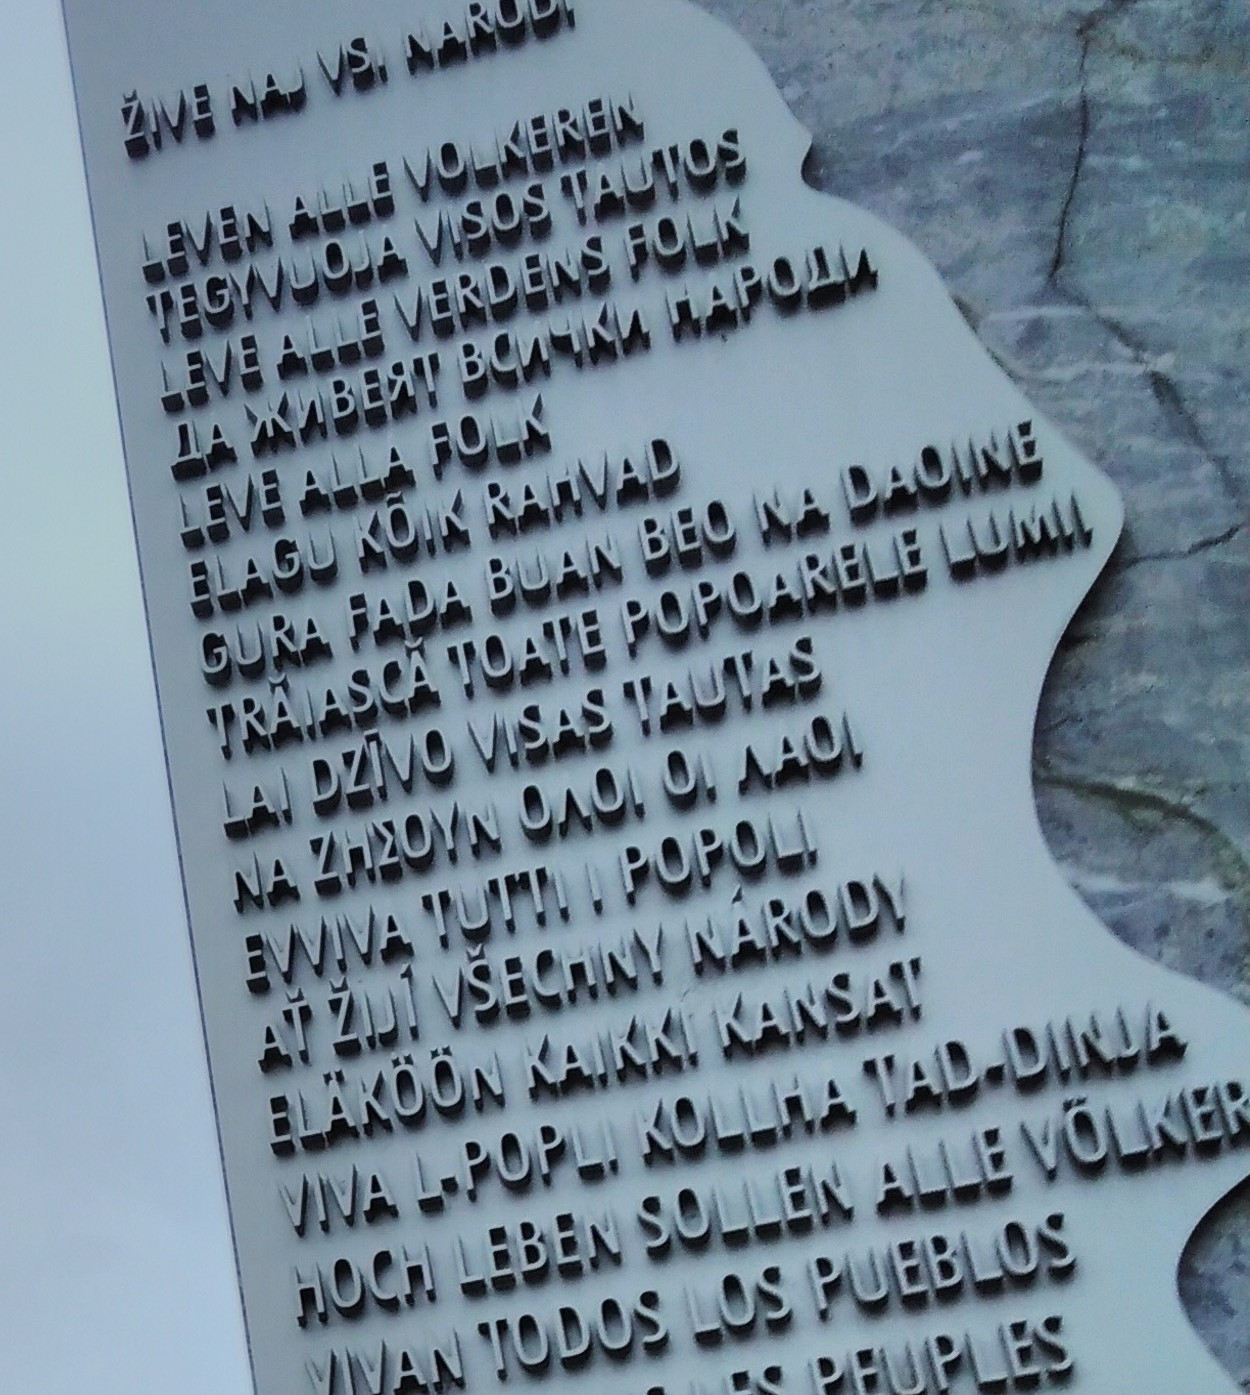 ŽIVE NAJ VSI NARODI
LEVEN ALLE VOLKEREN
TEGYVUOJA VISOS TAUTOS
LEVE ALLE VERDENS FOLK
ДА ЖИВЕЯТ ВСИЧКИ НАРОДИ
LEVE ALLA FOLK
ELAGU KÕIK RAHVAD
GURA FADA BUAN BEO NA DAOINE
TRĂIASCĂ TOATE POPOARELE LUMII
LAI DZĪVO VISAS TAUTAS
ΝΑ ΖΗΣΟΥΝ ΟΛΟΙ ΟΙ ΛΑΟΙ
EVVIVA TUTTI I POPOLI
AŤ ŽIJÍ VŠECHNY NÁRODY
ELÄKÖÖN KAIKKI KANSAT
VIVA L-POPLI KOLLHA TAD-DINJA
HOCH LEBEN SOLLEN ALLE VÖLKER
VIVAN TODOS LOS PUEBLOS
LES PEUPLES